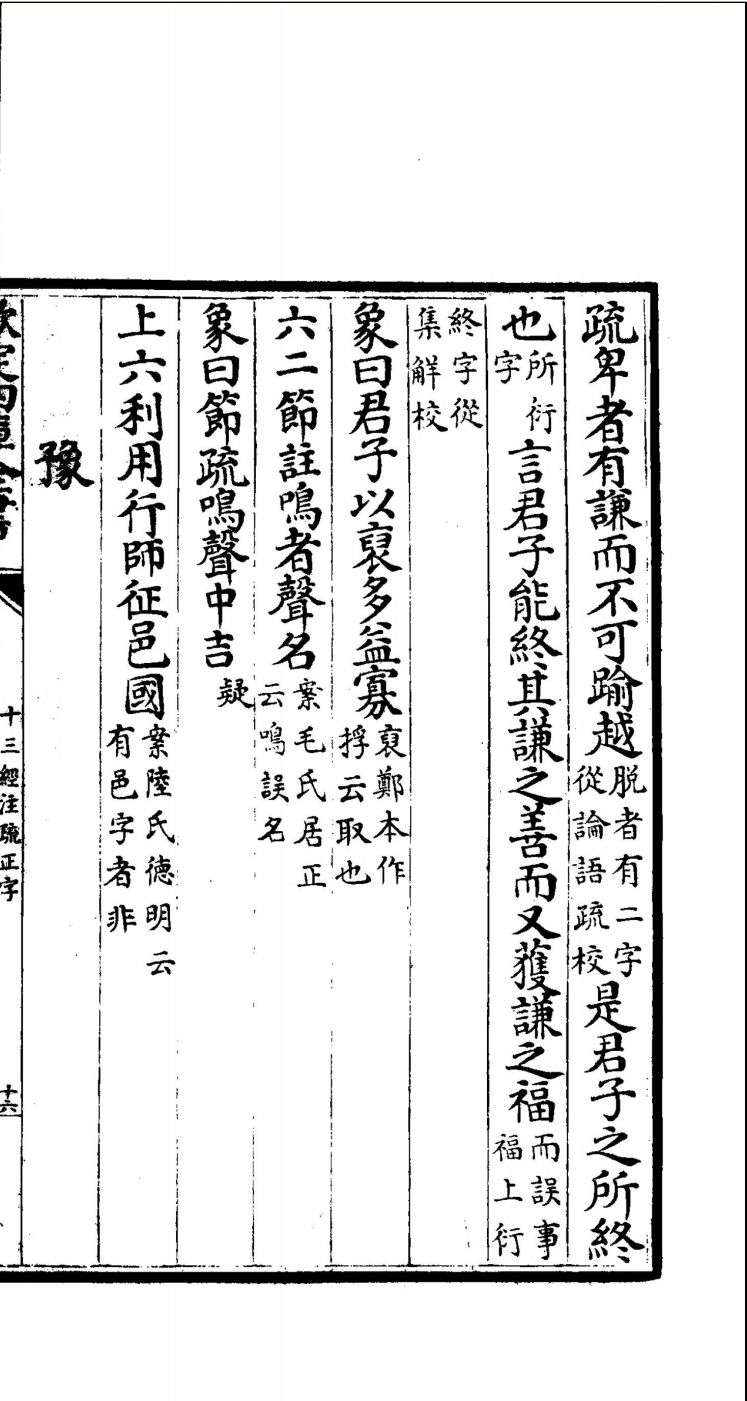 疏卑者有謙而不可踰越脱者有二字從論語疏校是君子之所終
也所衍字言君子能終其謙之善而又獲謙之福而誤事福上衍
終字從集解校
象曰君子以裒多益寡裒鄭本作捊云取也
六二節註鳴者聲名案毛氏居正云鳴誤名
象曰節疏鳴聲中吉疑
上六利用行師征邑國案陸氏德明云有邑字者非
豫
欽定四庫全書
十三經注疏正字
十六